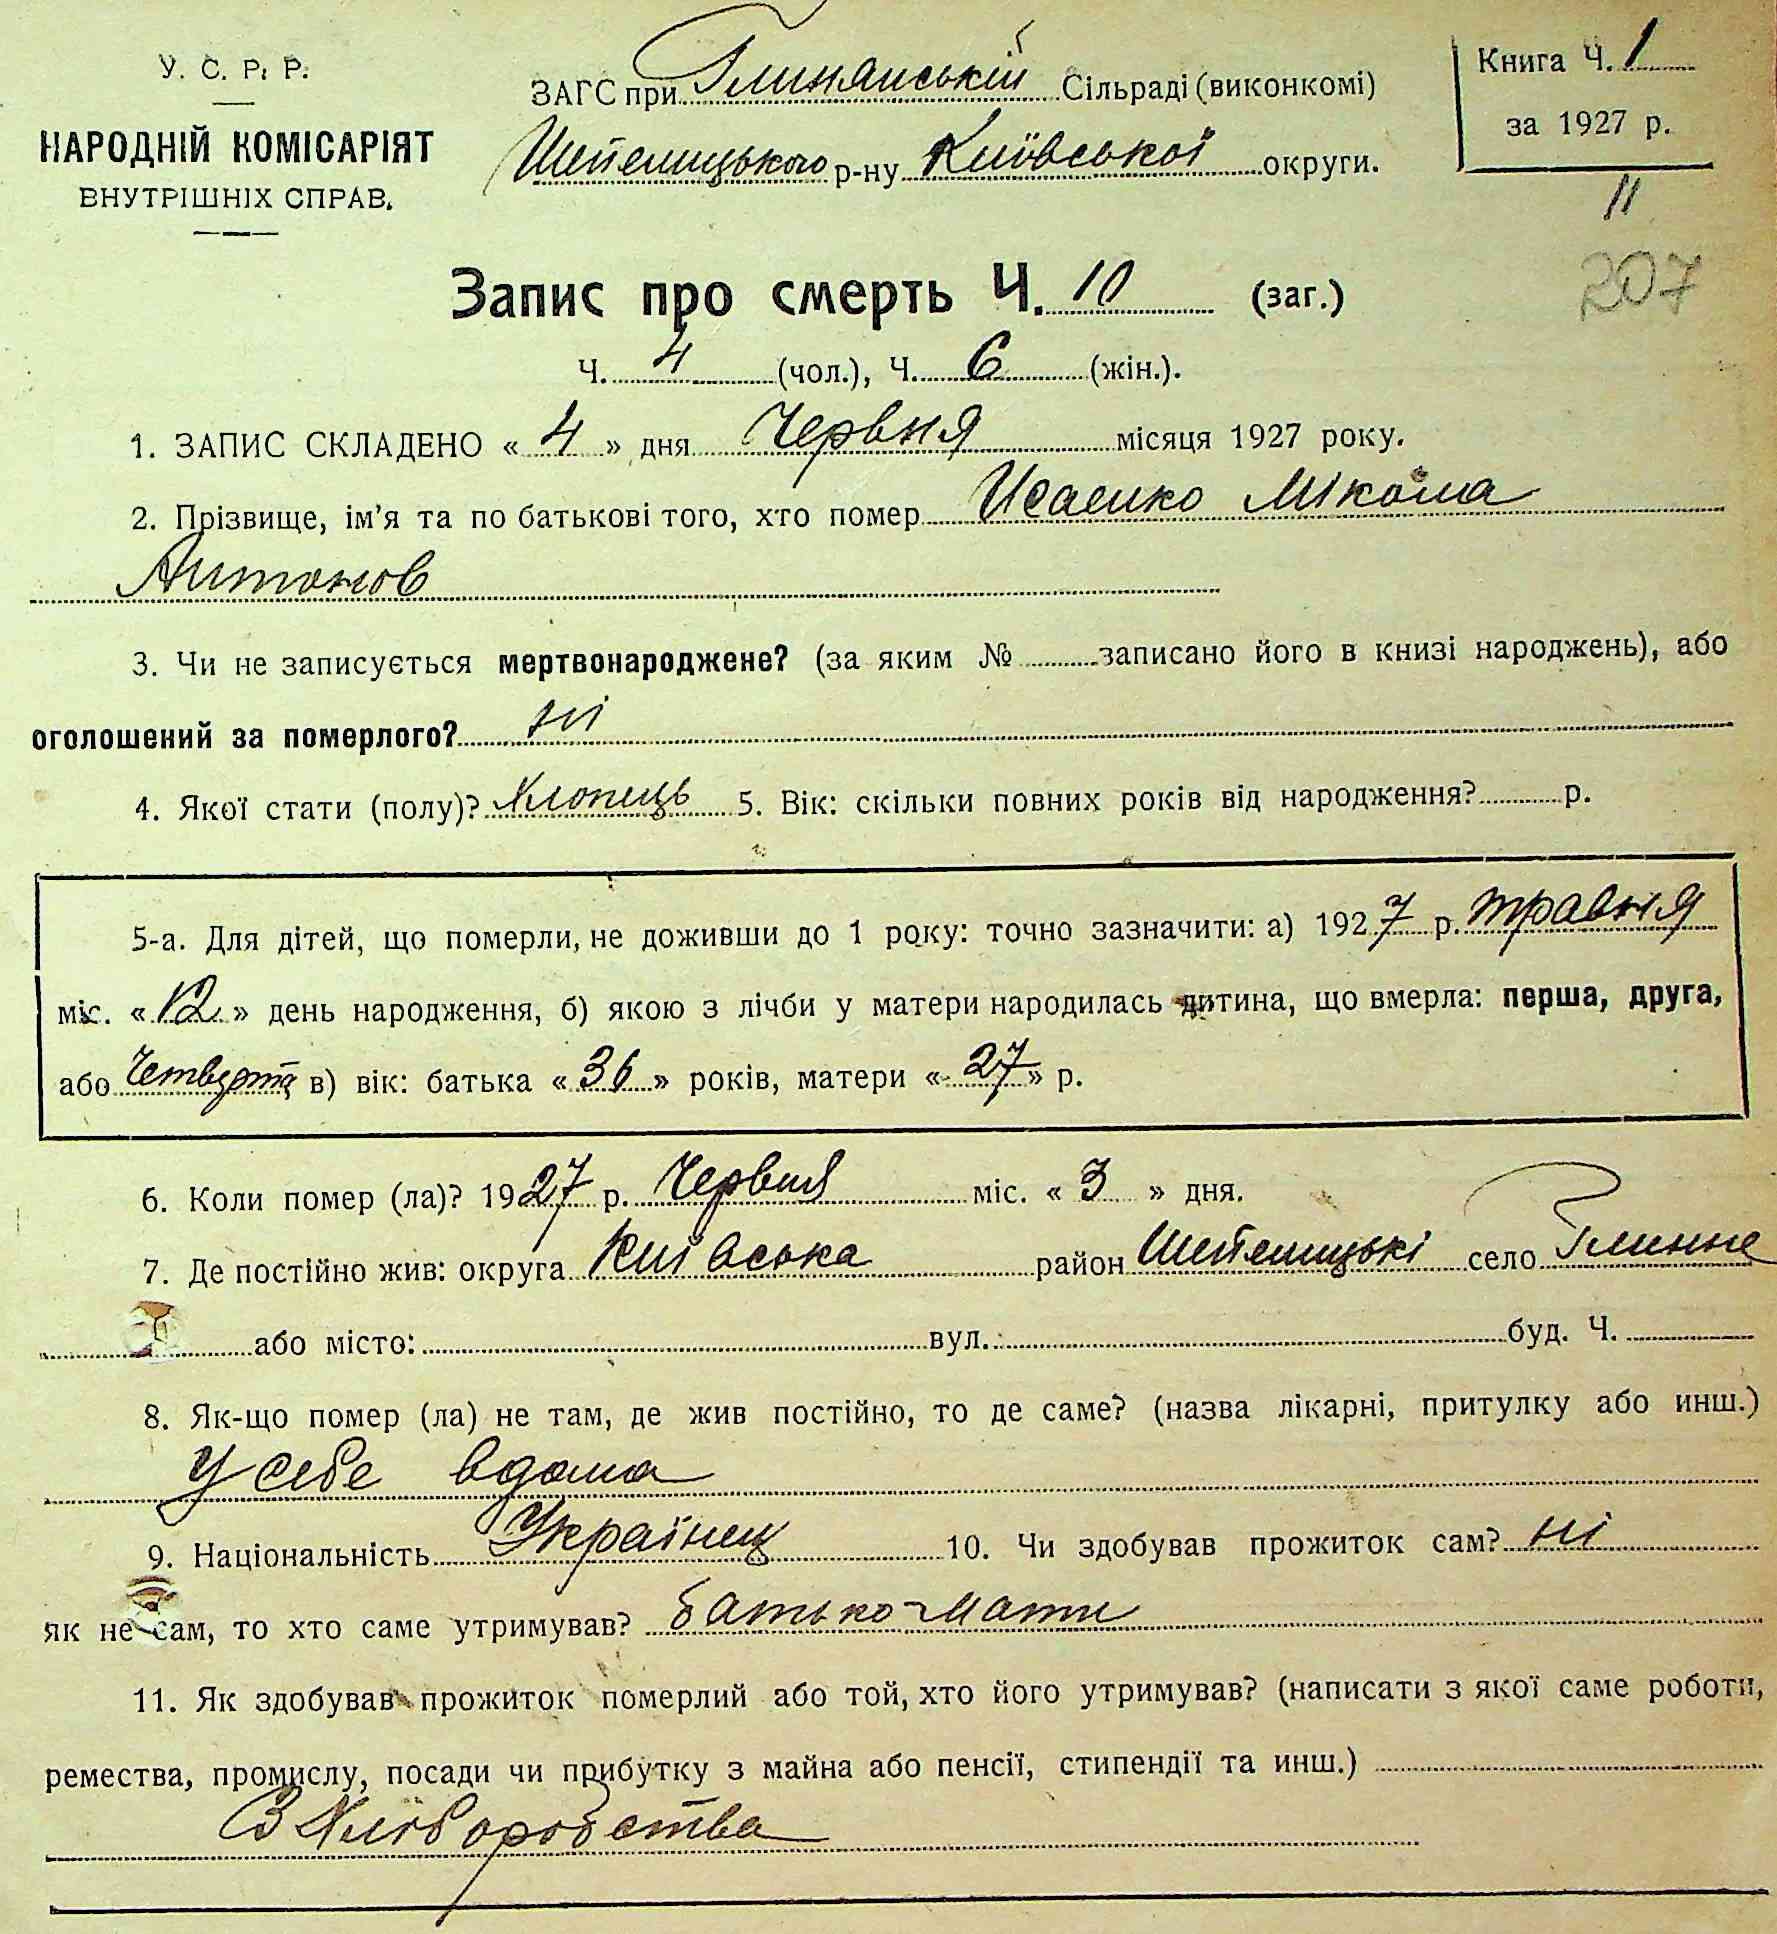 У. С. Р. Р.
НАРОДНІЙ КОМІСАРІЯТ
ВНУТРІШНІХ СПРАВ.
ЗАГС при Глинянській Сільраді (виконкомі)
Шепелицького р-ну Київської округи.
Книга Ч. 1
за 1927 р.
11
207
Запис про смерть Ч. 10 (заг.)
Ч. 4 (чол.), Ч. 6 (жін.).
1. ЗАПИС СКЛАДЕНО « 4 » дня Червня місяця 1927 року.
2. Прізвище, ім’я та по батькові того, хто помер Исаенко Мікола
Антонов
3. Чи не записується мертвонароджене? (за яким № записано його в книзі народжень), або
оголошений за померлого? ні
4. Якої стати (полу)? Хлопець 5. Вік: скільки повних років від народження? р.
5-а. Для дітей, що померли, не доживши до 1 року: точно зазначити: а) 1927 р. травня
міс. « 12 » день народження, б) якою з лічби у матери народилась дитина, що вмерла: перша, друга,
або Четверта в) вік: батька « 36 » років, матери « 27 » р.
6. Коли помер (ла)? 1927 р. Червня міс. « 3 » дня.
7. Де постійно жив: округа Київська район Шепелицькі село Глинне
або місто: вул. буд. Ч.
8. Як-що помер (ла) не там, де жив постійно, то де саме? (назва лікарні, притулку або инш.)
У себе вдома
9. Національність Українец 10. Чи здобував прожиток сам? ні
як не сам, то хто саме утримував? батько-мати
11. Як здобував прожиток померлий або той, хто його утримував? (написати з якої саме роботи,
ремества, промислу, посади чи прибутку з майна або пенсії, стипендії та инш.)
З Хліборобства